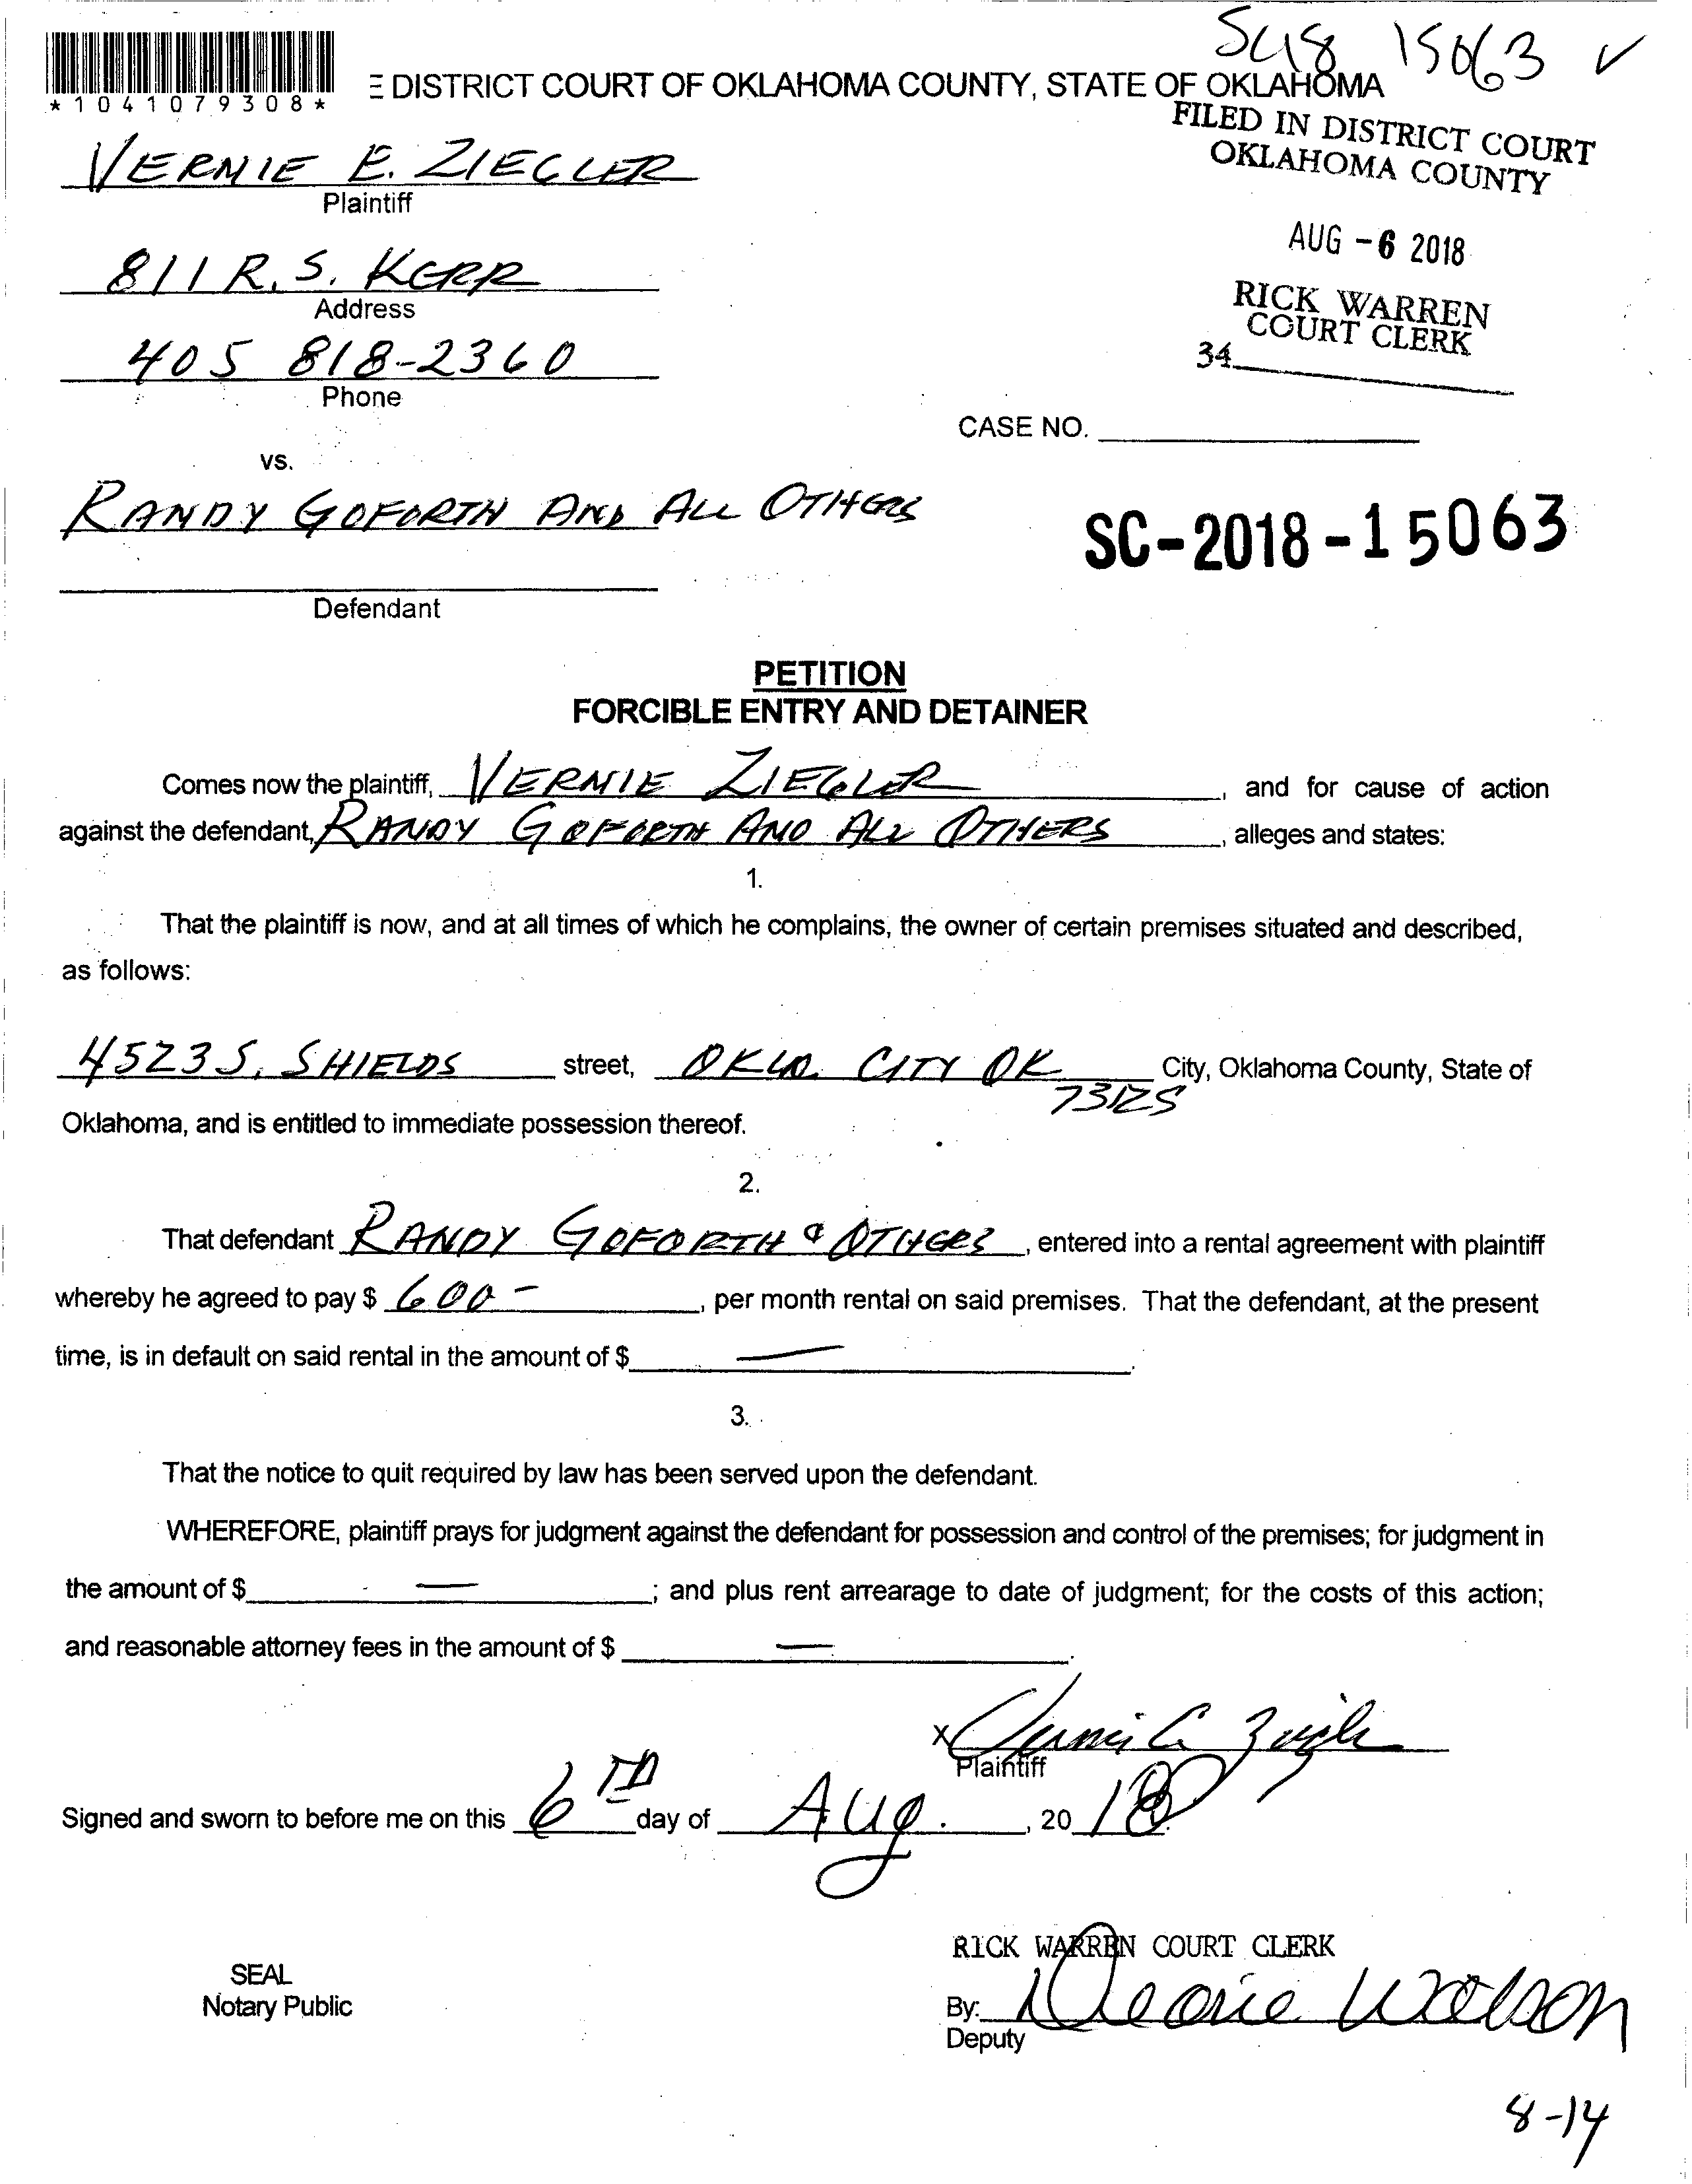 SC18 15063 ✓
*1041079308*
E DISTRICT COURT OF OKLAHOMA COUNTY, STATE OF OKLAHOMA
FILED IN DISTRICT COURT
OKLAHOMA COUNTY
VERNIE E. ZIEGLER
Plaintiff
AUG -6 2018
811 R. S. KERR
Address
RICK WARREN
COURT CLERK
34
405 818-2360
Phone
CASE NO.
vs.
RANDY GOFORTH AND ALL OTHERS
SC-2018-15063
Defendant
PETITION
FORCIBLE ENTRY AND DETAINER
Comes now the plaintiff, VERNIE ZIEGLER, and for cause of action
against the defendant, RANDY GOFORTH AND ALL OTHERS, alleges and states:
1.
That the plaintiff is now, and at all times of which he complains, the owner of certain premises situated and described,
as follows:
4523 S. SHIELDS street, OKLA. CITY OK City, Oklahoma County, State of
73125
Oklahoma, and is entitled to immediate possession thereof.
2.
That defendant RANDY GOFORTH & OTHERS, entered into a rental agreement with plaintiff
whereby he agreed to pay $ 600 -, per month rental on said premises. That the defendant, at the present
time, is in default on said rental in the amount of $ —.
3.
That the notice to quit required by law has been served upon the defendant.
WHEREFORE, plaintiff prays for judgment against the defendant for possession and control of the premises; for judgment in
the amount of $ —; and plus rent arrearage to date of judgment; for the costs of this action;
and reasonable attorney fees in the amount of $ —.
X
Plaintiff
Signed and sworn to before me on this 6TH day of Aug., 2018.
RICK WARREN COURT CLERK
SEAL
Notary Public
By: Watson
Deputy
8-14